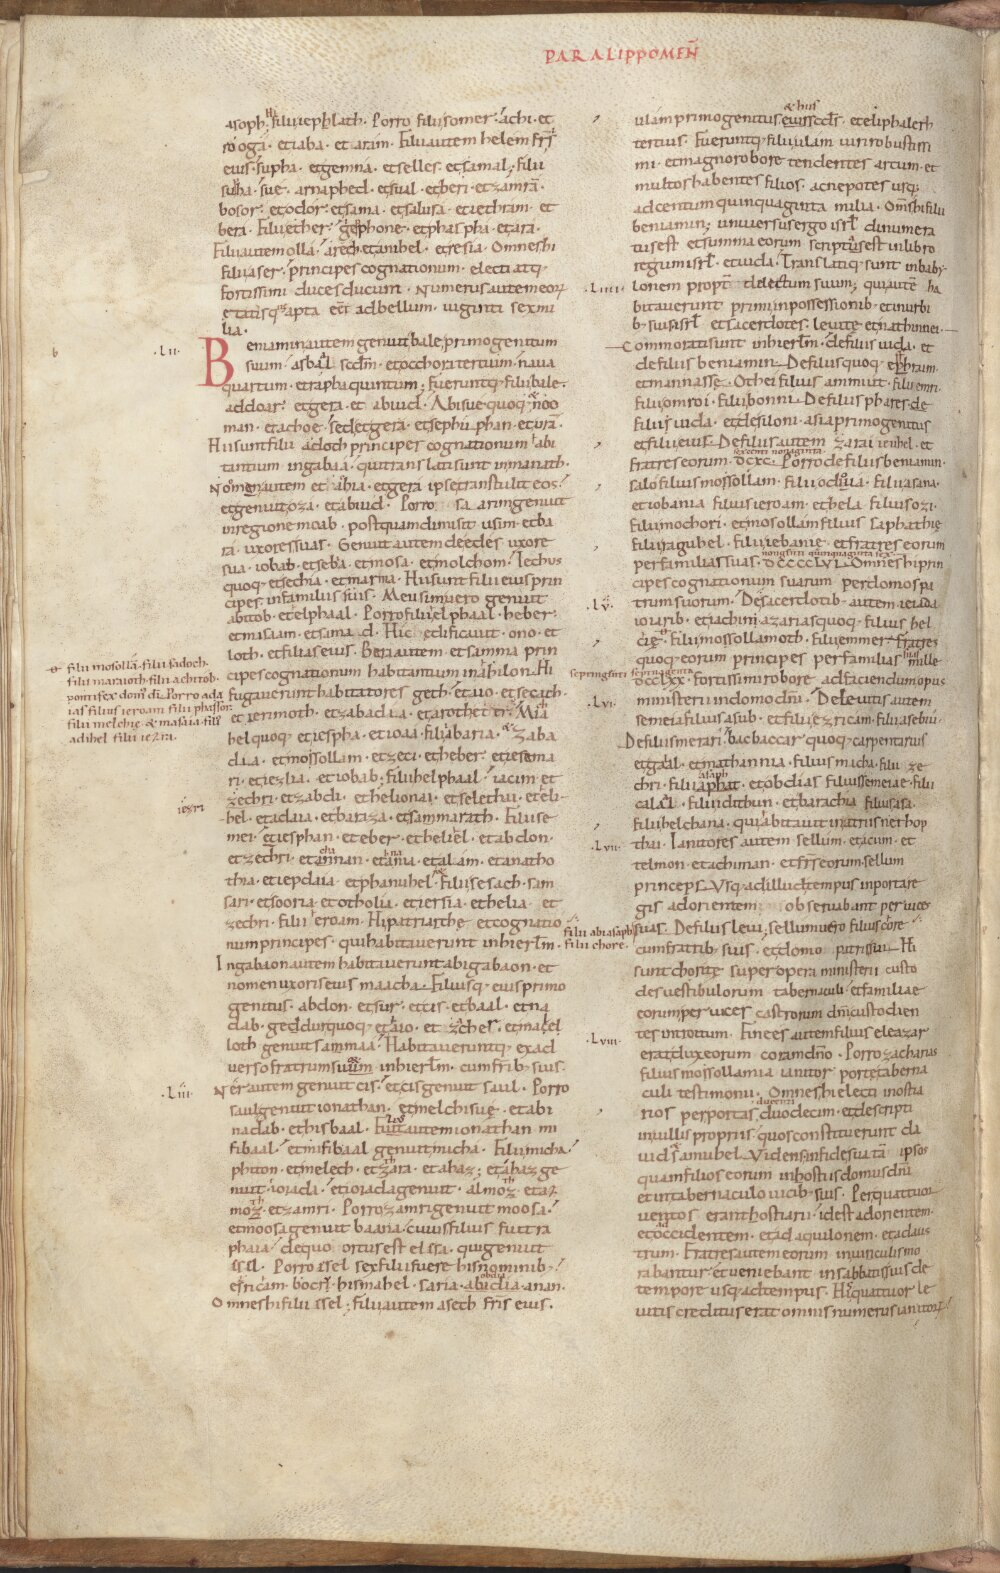 PARALIPPOMEN̄
asoph. filii iephlath. Porro filii somer. achi. et
rooga. et iaba. et aram. Filii autem helem frīs
eius. supha. et gemna. et selles. et samal; filii
supha. sue. arnaphed. et sual. et beri. et zamrā.
bosor. et odor. et sama. et salusa. et iethram. et
bera. Filii ether. gephone. et phaspha. et ara.
Filii autem olla. arech. et anihel. et resia. Omnes hi
filii aser. principes cognationum. electi atq;
fortissimi duces ducum. Numerus autem eorꝝ
ętatis quę apta eēt ad bellum. uiginti sex mi
lia.
.LII.
Beniamin autem genuit bale primogenitum
suum. asbal scdm̄. et occhora tertium. naua
quartum. et rapha quintum; Fueruntq; filii bale.
addoar. et gera. et abiud. Abisue quoq; noo
man. et achoe. sed et gera. et sephuphan. et urā.
Hi sunt filii adoch principes cognationum abi
tantium in gabaa. qui translati sunt in manath.
Noman autem et abia. et gera ipse transtulit eos.
et genuit oza. et abiud. Porro sa arim genuit
in regione moab. postquam dimisit usim. et ba
ra. uxores suas. Genuit autem de edes uxore
sua. iobab. et seba. et mosa. et molchom. Iechus
quoq; et sechia. et marma. Hi sunt filii eius prin
cipes in familiis suis. Meusim uero genuit
abitob. et elphaal. Porro filii elphaal. heber.
et misiam. et sama d. Hic edificauit. ono. et
loth. et filias eius. Bera autem et samma prin
cipes cognationum habitantium in ahilon. Hi
fugauerunt habitatores geth. et aio. et sesach.
et ierimoth. et zabadia. et aroth et Micha
hel quoq; et iespha. et ioaa. filii abaria. Zaba
dia. et mossollam. et zeci. et heber. et iesema
ri. et iezlia. et iobab; filii helphaal. iacim. et
zechri. et zabdi. et helionai. et selethai. et eli
hel. et adaia. et baraza. et sammarath. Filii se
mei. et iesphan. et eber. et heliel. et abdon.
et zechri. et annan. et ania. et alam. et anatho
thia. et iepdaia. et phanuhel. filii sesach. sam
sari. et sooria. et otholia. et iersia. et helia. et
zechri. filii ieroam. Hi patriarchę. et cognatio
num principes. qui habitauerunt in hierlm̄.
In gabaon autem habitauerunt abigabaon. et
nomen uxoris eius maacha. Filiusq; eius primo
genitus. abdon. et sur. et cis. et baal. et na
dab. geddur quoq; et aio. et zacher. et macel
loth genuit sammaa. Habitaueruntq; ex ad
uerso fratrum suum in hierlm̄. cum frīb; suis.
.LIII.
Ner autem genuit cis. et cis genuit saul. Porro
saul genuit ionathan. et melchisue. et abi
nadab. et hisbaal. Fuit autem ionathan mi
fibaal. et mifibaal genuit micha. Filii micha.
phiton. et melech. et zara. et ahaz; et ahaz ge
nuit. iorada. et iorada genuit. almoz. et az
moz. et zamri. Porro zamri genuit moosa.
et moosa genuit baana. cuius filius fuit ra
phaia. de quo ortus est elssa. qui genuit
ssel. Porro assel sex filii fuere his nominib;
esricam. bocri. hismahel. saria. abudia. anan.
Omnes hi filii ssel; filii autem asech frīs eius.
filii mosollā. filii sadoch.
filii maraioth. filii achitob.
pontifex dom' di. Porro ada
ias filius ieroam. filii phassor.
filii melchie. & masaia. filii
adihel. filii iezra.
iezri
& hus
ulam primogenitus. eius scdˢ. et eliphaleth
tertius. Fueruntq; filii ulam. uiri robustissi
mi. et magno robore tendentes arcum. et
multos habentes filios. ac nepotes usq;
ad centum quinquaginta milia. Om̄s hi filii
beniamin; uniuersus ergo isrl̄ dinumera
tus est. et summa eorum scripta est in libro
regum isrl̄. et iuda. Translatiq; sunt in baby
.LIIII.
lonem propt̄ delictum suum; qui autē ha
bitauerunt primi in possessionib; et in urbi
b; suis. isrl̄. et sacerdotes. leuitę. et nathinnei.
Commorati sunt in hierlm̄. de filiis iuda. et
de filiis beniamin. De filiis quoq; ephraim.
et mannasse. Othei filius ammiut. filii emri.
filii omroi. filii bonni. De filiis phares. de
filiis iuda. et de siloni. asia primogenitus
et filii eius. De filiis autem zarai ieuhel. et
sexcenti nonaginta
fratres eorum. DCXC. Porro de filiis beniamin.
salo filius mossollam. filii oduia. filii asana.
et iobania filius ieroam. et hela filius ozi.
filii mochori. et mosollam filius saphathie
filii raguhel. filii iebanie. et fratres eorum
nongenti quinquaginta sex
per familias suas. DCCCCLVI. Omnes hi prin
cipes cognationum suarum per domos pa
.LV.
trum suorum. De sacerdotib; autem. ieiada
ioiarib. et iachin. azarias quoq; filius hel
cię. filii mossollamoth. filii emmer. fratres
quoq; eorum principes per familias suas mille
septingenti septuaginta
DCCLXX. fortissimi robore ad faciendum opus
.LVI.
ministerii in domo dn̄i. De leuitis autem
semeia filius asub. et filii ezricam. filii asebiū.
De filiis merari. bacbaccar quoq; carpentarius
et galal. et mathannia. filius micha. filii ze
chri. filii asaph. et obdias filius semeiae. filii
calal. filii idithun. et barachia filius asa.
filii helchana. qui habitauit in atriis nethop
.LVII.
thai. Ianitores autem sellum. et acum. et
telmon. et achiman. et frīs eorum. sellum
princeps. Usq; ad illud tempus in porta re
gis ad orientem obseruabant per uices
suas. De filiis leui; sellum uero filius core
filii abiasaph.
filii chore.
cum fratrib; suis. et domo patris sui. Hi
sunt choritę super opera ministerii custo
des uestibulorum tabernaculi. et familiae
eorum per uices castrorum dn̄i. custodien
.LVIII.
tes introitum. Finees autem filius eleazar
erat dux eorum coram dn̄o. Porro zacharias
filius mosollamia ianitor portę taberna
culi testimonii. Omnes hi electi in ostia
ducenti
rios per portas. duodecim. et descripti
in uillis propriis. quos constituerunt da
uid. samuhel. Uidens in fide sua tā ipsos
quam filios eorum in hostiis domus dn̄i
et in tabernaculo uicib; suis. Per quattuor
uentos erant hostiarii. id est ad orientem.
et occidentem. et ad aquilonem. et ad aus
trum. Fratres autem eorum in uiculis mo
rabantur. et ueniebant in sabbatis suis de
tempore usq; ad tempus. His quattuor le
uitis creditus erat omnis numerus ianitorꝝ.